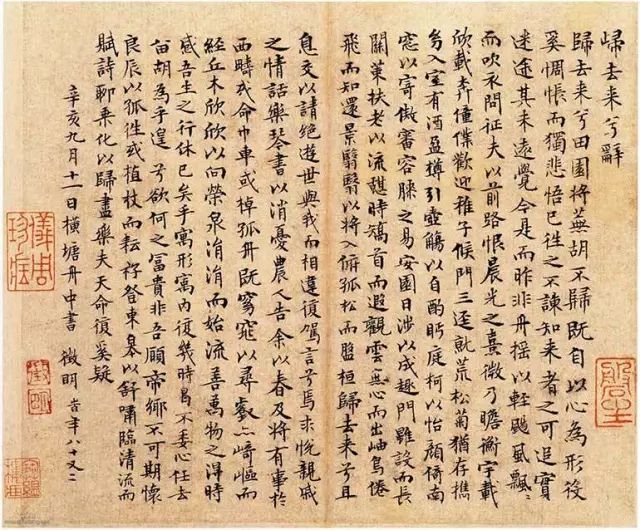 歸去来兮辭
歸去来兮田園將蕪胡不歸既自以心為形役
奚惆悵而獨悲悟已往之不諫知来者之可追實
迷途其未遠覺今是而昨非舟摇以軽颺風飄〻
而吹衣問征夫以前路恨晨光之熹微乃瞻衡宇載
欣載奔僮僕歡迎稚子候門三逕就荒松菊猶存携
幼入室有酒盈樽引壺觴以自酌眄庭柯以怡顔倚南
窓以寄傲審容膝之易安園日涉以成趣門雖設而長
關策扶老以流憩時矯首而遐觀雲無心而出岫鳥倦
飛而知還景翳翳以將入撫孤松而盤桓歸去来兮且
息交以請絶遊世與我而相遺復駕言兮焉求悦親戚
之情話樂琴書以消憂農人告余以春及將有事於
西疇或命巾車或棹孤舟既窈窕以尋壑亦崎嶇而
經丘木欣欣以向榮泉涓涓而始流善萬物之得時
感吾生之行休已矣乎寓形寓内復幾時曷不委心任去
留胡為乎遑兮欲何之富貴非吾願帝鄉不可期懷
良辰以孤往或植杖而耘耔登東皋以舒嘯臨清流而
賦詩聊乘化以歸盡樂夫天命復奚疑
辛亥九月十一日横塘舟中書 徵明 時年八十又二
儀周珍藏
徵明